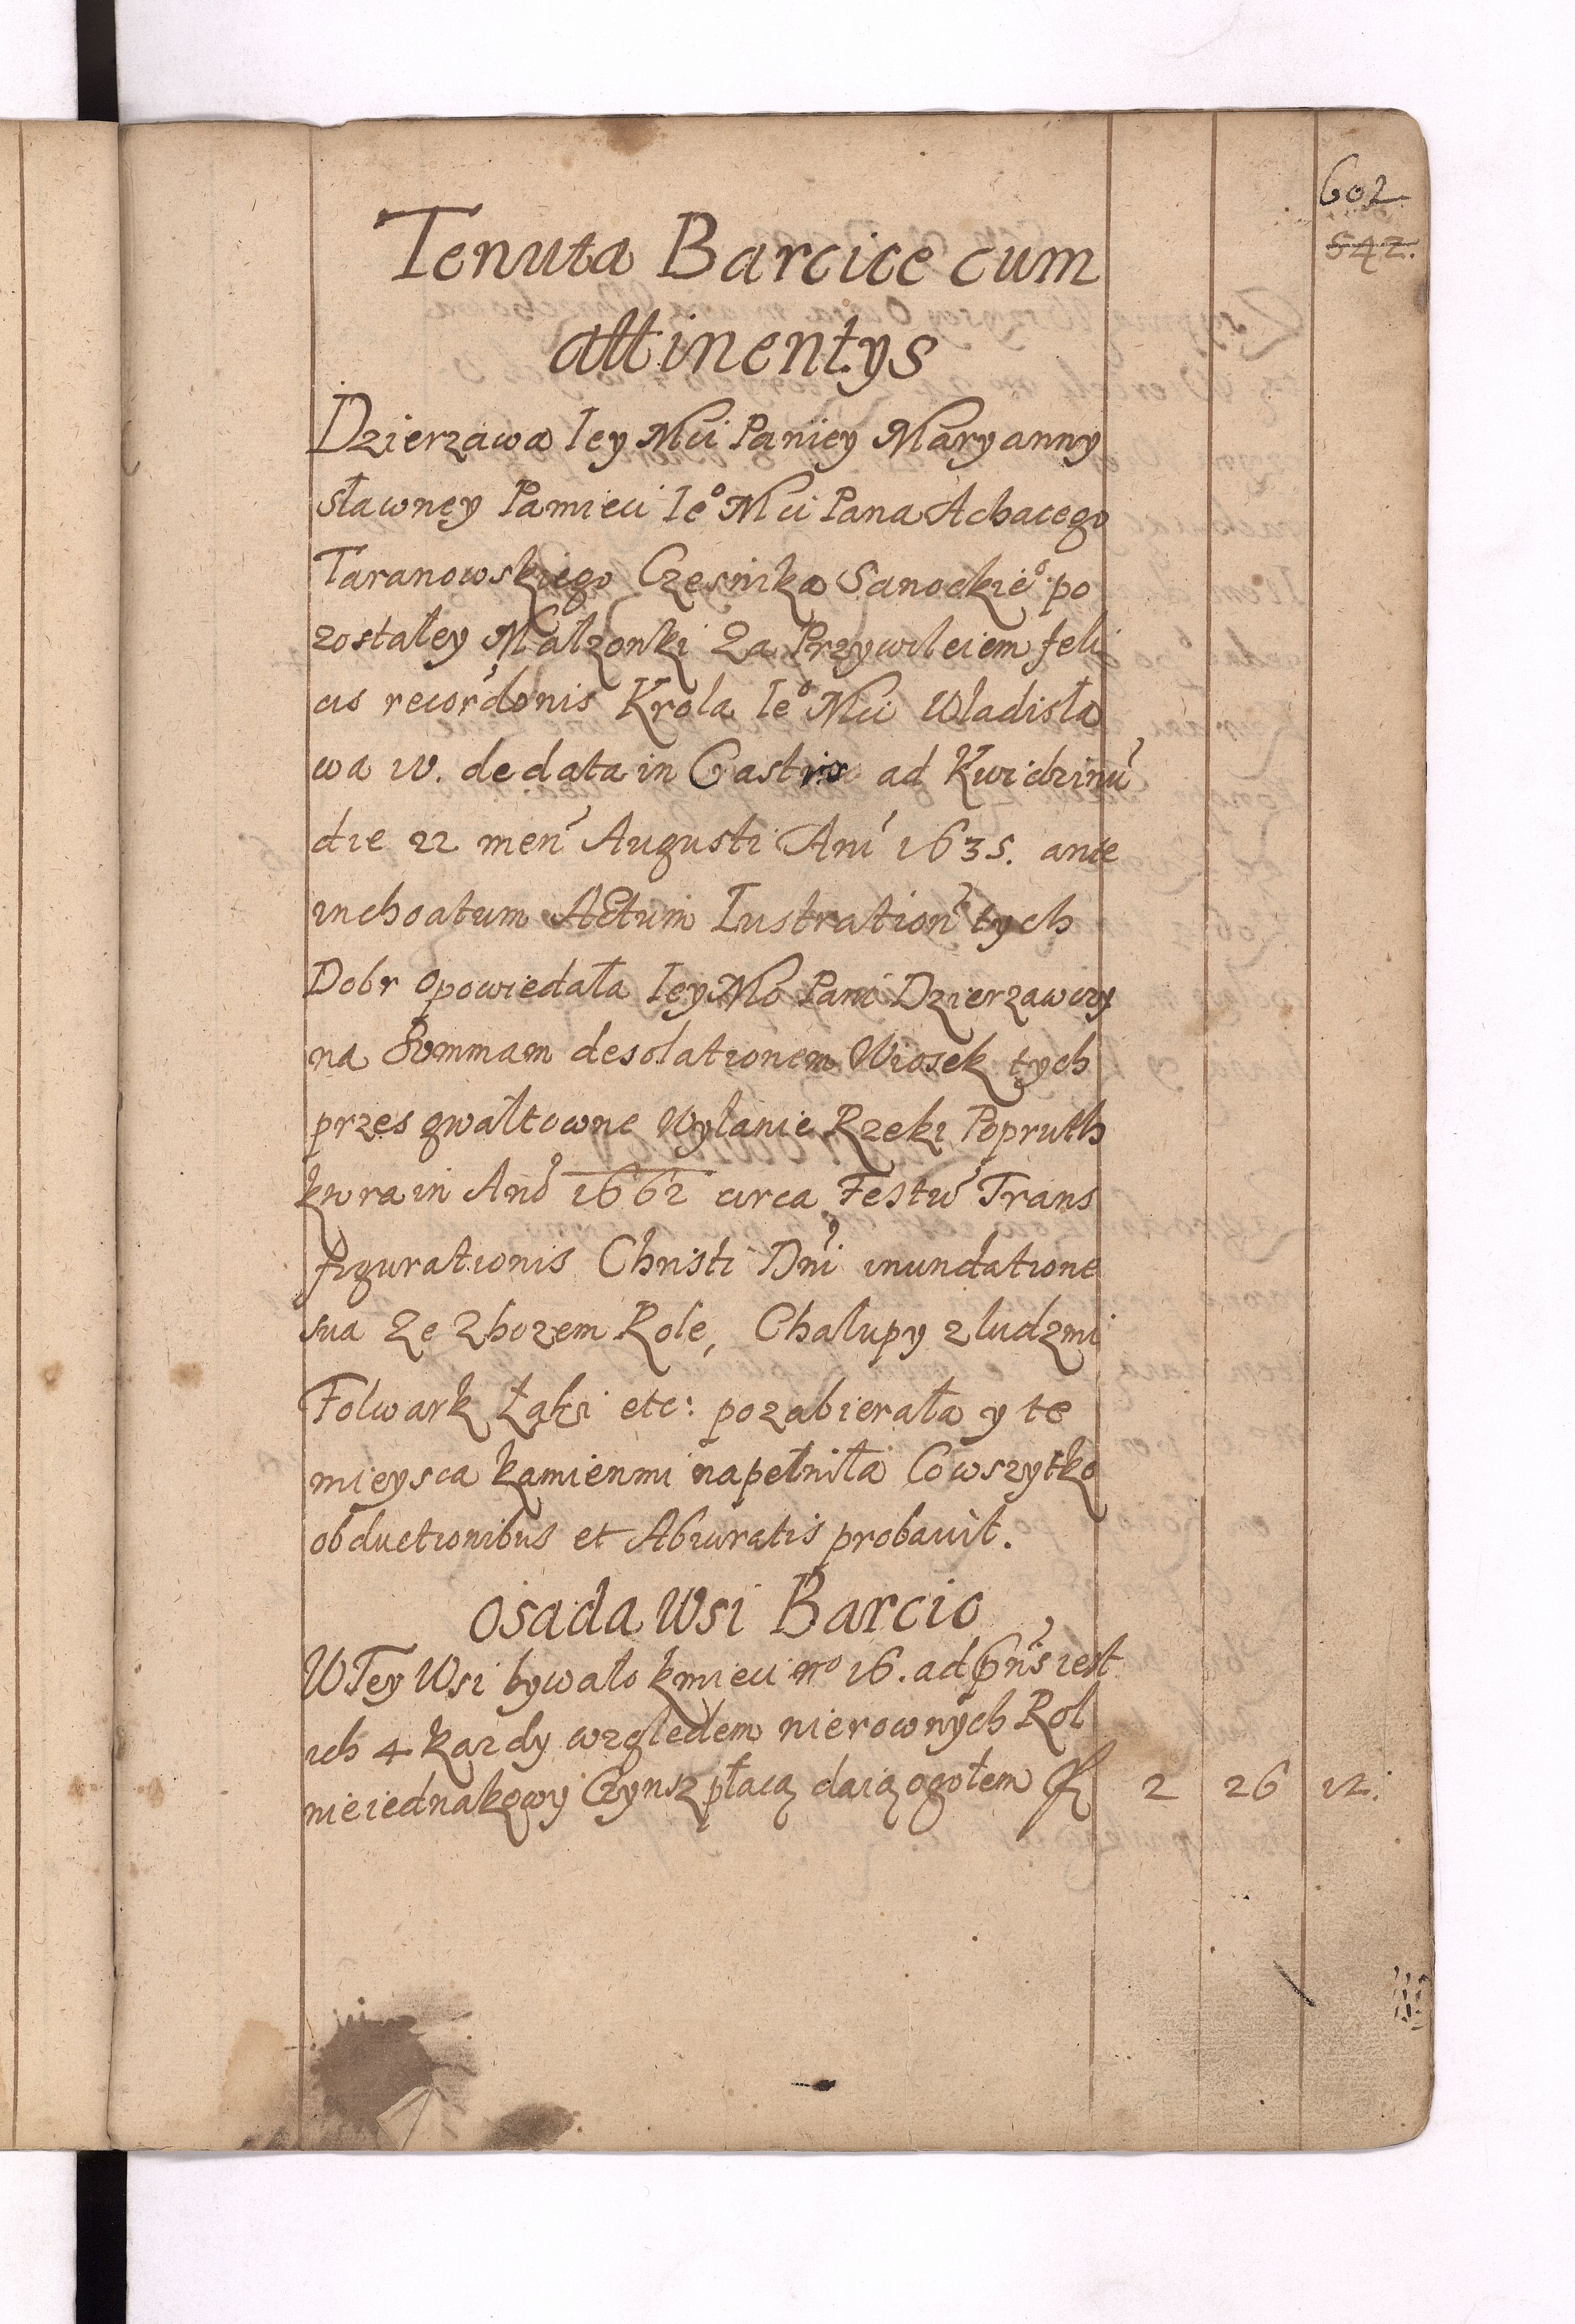 602
542.
Tenuta Barcice cum
attinentys
Dzierzawa Iey Mci Paniey Maryanny
sławney Pamieci Ieº Mci Pana Achacego
Taranowskiego Czesnika Sanockieº po
zostałey Małzonki Za Przywileiem feli
cis recordonis Krola Ieº Mci Wladisła
wa IV. de data in Castris ad Kwidzinu
die 22 men Augusti Ani 1635. ante
inchoatum Actum Lustration tych
Dobr opowiedała Iey Mc Pani Dzierzawczy
na Summam desolationem Wiosek tych
przes gwałtowne Wylanie Rzeki Popruth
ktora in Ano 1662 circa Festu Trans
figurationis Christi Dni inundatione
sua Ze Zbozem Role, Chalupy z ludzmi
Folwark Łąki etc: pozabierała y te
mieysca kamienmi napełniła Co wszytko
obductionibus et Abiuratis probavit.
Osada Wsi Barcic
W Tey Wsi bywało kmieci nro 16. ad pns iest
ich 4 kazdy względem nierownych Rol
nieiednakowy Czynsz płacą daią ogołem 2 26 12.